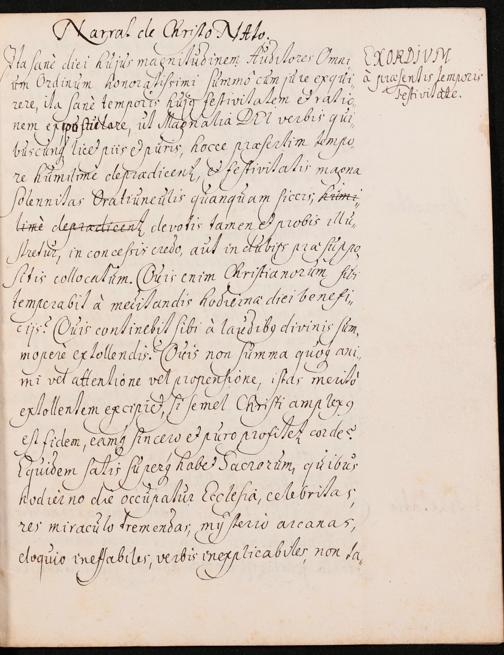 Narrat de Christo NAto.
Ita sanè diei hujus magnitudinem Auditores Omni
um Ordinum honoratissimi summo cum jure exqui-
rere, ita sanè temporis hujq festivitatem et ratio-
nem ut Magnalia DEI verbis qui-
buscunq licet piis et puris, hocce praesertim tempo-
re humilimè depradicent, et festivitatis magna
solennitas Oratiunculis quanquam siccis, humi-
limè depradicent devotis tamen et probis illu-
stretur, in concessis credo, aut in dubijs praesuppo
sitis collocatum. Quis enim Christianorum sibi
temperabit à meditandis hodierna diei benefi-
cijs? Quis continebit sibi à laudibq divinis sum-
mopere extollendis? Quis non summa quoq ani-
mi vel attentione vel propensione, istas meritò
extollentem excipiet, si semel Christi amplexq
est fidem, eamq sincero et puro profitet corde?
Equidem satis superq habet Sacrorum, quibus
hodierno die occupatur Ecclesia, celebritas,
res miraculo tremendas, mysterio arcanas,
eloquio ineffabiles, verbis inexplicabiles, non ta-
EXORDIUM
à praesentis temporis
festivitate.